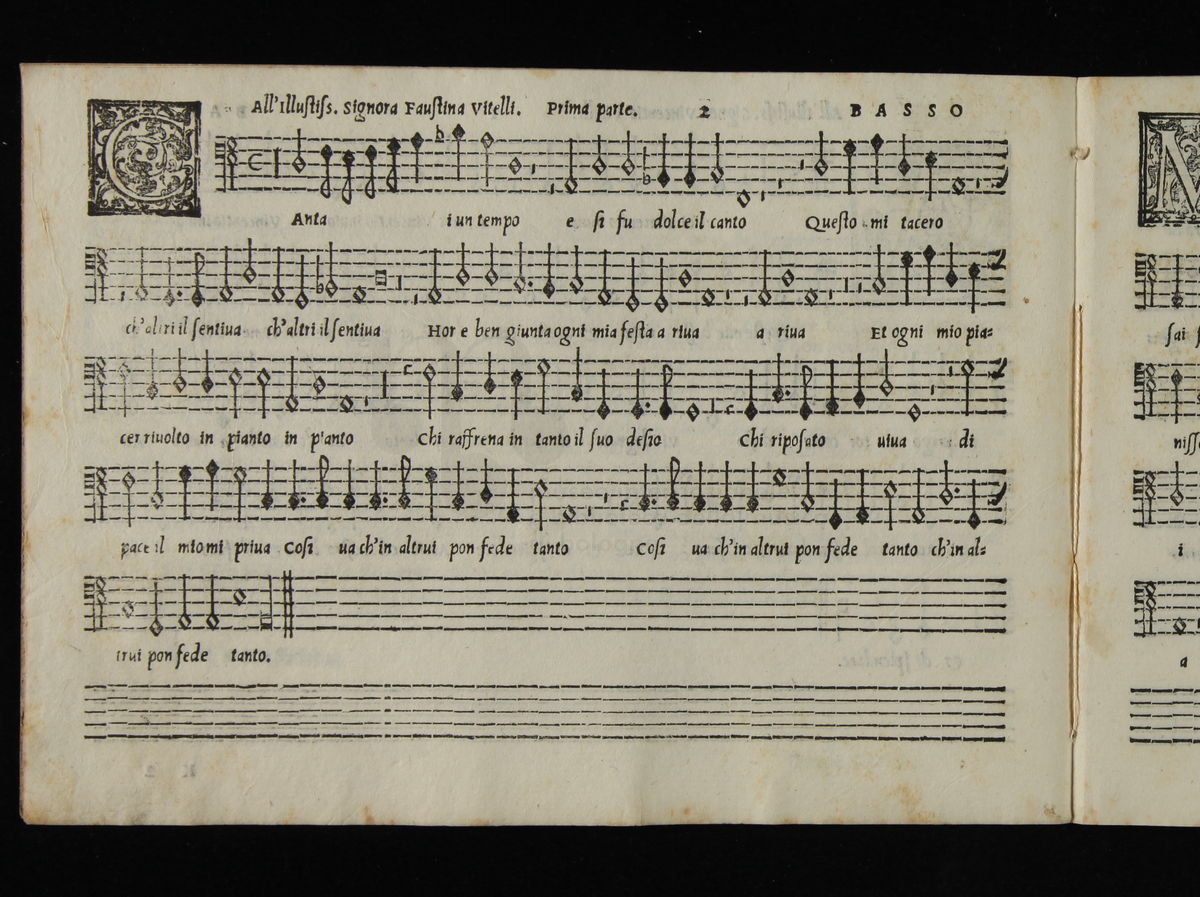 All'Illustiss. Signora Faustina Vitelli. Prima parte. 2 BASSO
C Anta i un tempo e si fu dolce il canto Questo mi tacero
ch'altri il sentiua ch'altri il sentiua Hor e ben giunta ogni mia festa a riua a riua Et ogni mio pia=
cer riuolto in pianto in pianto Chi raffrena in tanto il suo desio Chi riposato uiua di
pace il mio mi priua Cosi ua ch'in altrui pon fede tanto Cosi ua ch'in altrui pon fede tanto ch'in al=
trui pon fede tanto.
M
sai
i
a